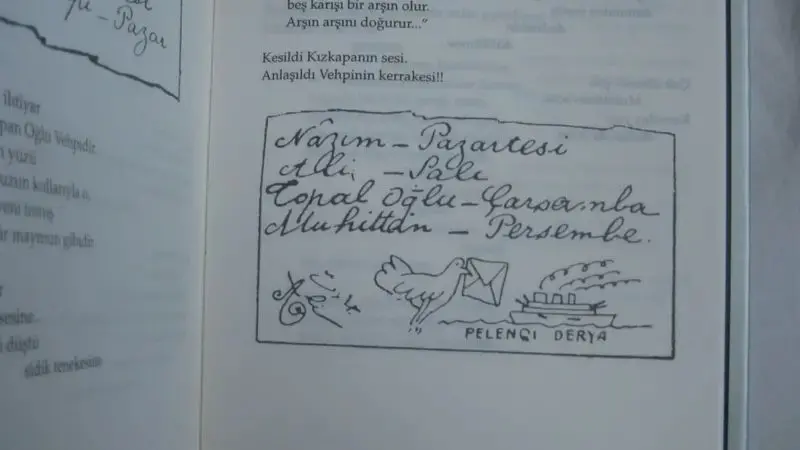 yu - Pazar
ihtiyar
pan Oğlu Vehpidir
n yüzü
uzun kollarıyla o,
ir maymun gibidir
r
sesine
düştü
sidik tenekesine
beş karışı bir arşın olur.
Arşın arşını doğurur..."
Kesildi Kızkapanın sesi.
Anlaşıldı Vehpinin kerrakesi!!
Nâzım - Pazartesi
Ali - Salı
Topal Oğlu - Çarşamba
Muhittin - Perşembe.
PELENGİ DERYA